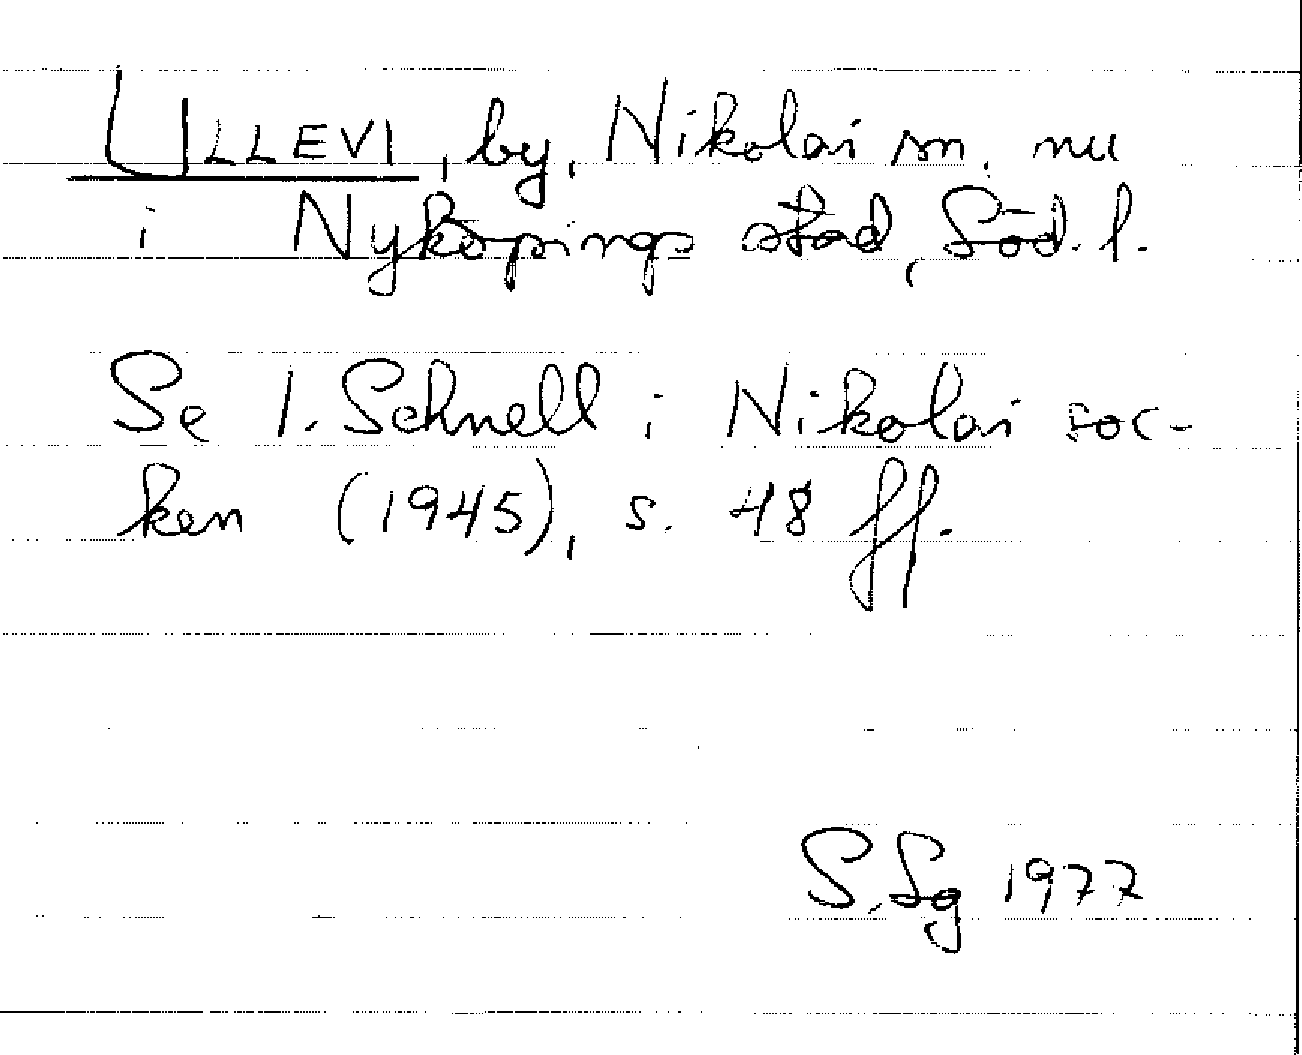 ULLEVI, by, Nikolai sn. nu
i Nyköpings stad, Söd. l.
Se I. Schnell i Nikolai soc-
ken (1945), s. 48 ff.
S. Sg 1977